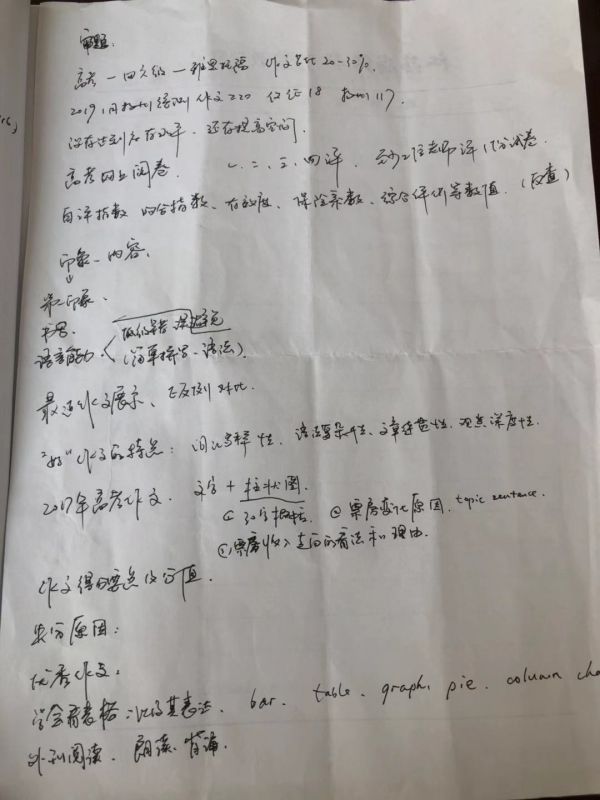 审题:
高考 — 四六级 — 雅思托福 作文占比 20-30%.
2019 1月杭州统测 作文 220 仅 18 杭州 117.
没有达到应有水平, 还有提高空间.
高考网上阅卷. 一、二、三、四评. 至少2位老师评1份试卷
自评指数 吻合指数、有效度、保险系数、综合评价等数值. (反查)
印象—内容.
第一印象.
书写.
语言能力. 低级错误避免
(简单拼写—语法).
最近作文展示、正反例对比.
"好"作文的特点: 词汇多样性. 语法复杂性、文章连贯性, 观点深度性.
2017年高考作文. 文字 + 柱状图.
① 30字概括. ② 票房变化原因. topic sentence.
③ 票房收入走向的看法和理由.
作文得分要点及分值.
失分原因:
优秀作文:
学会看表格: 比较其表法. bar. table. graph. pie. column cha
外刊阅读. 朗读. 背诵.